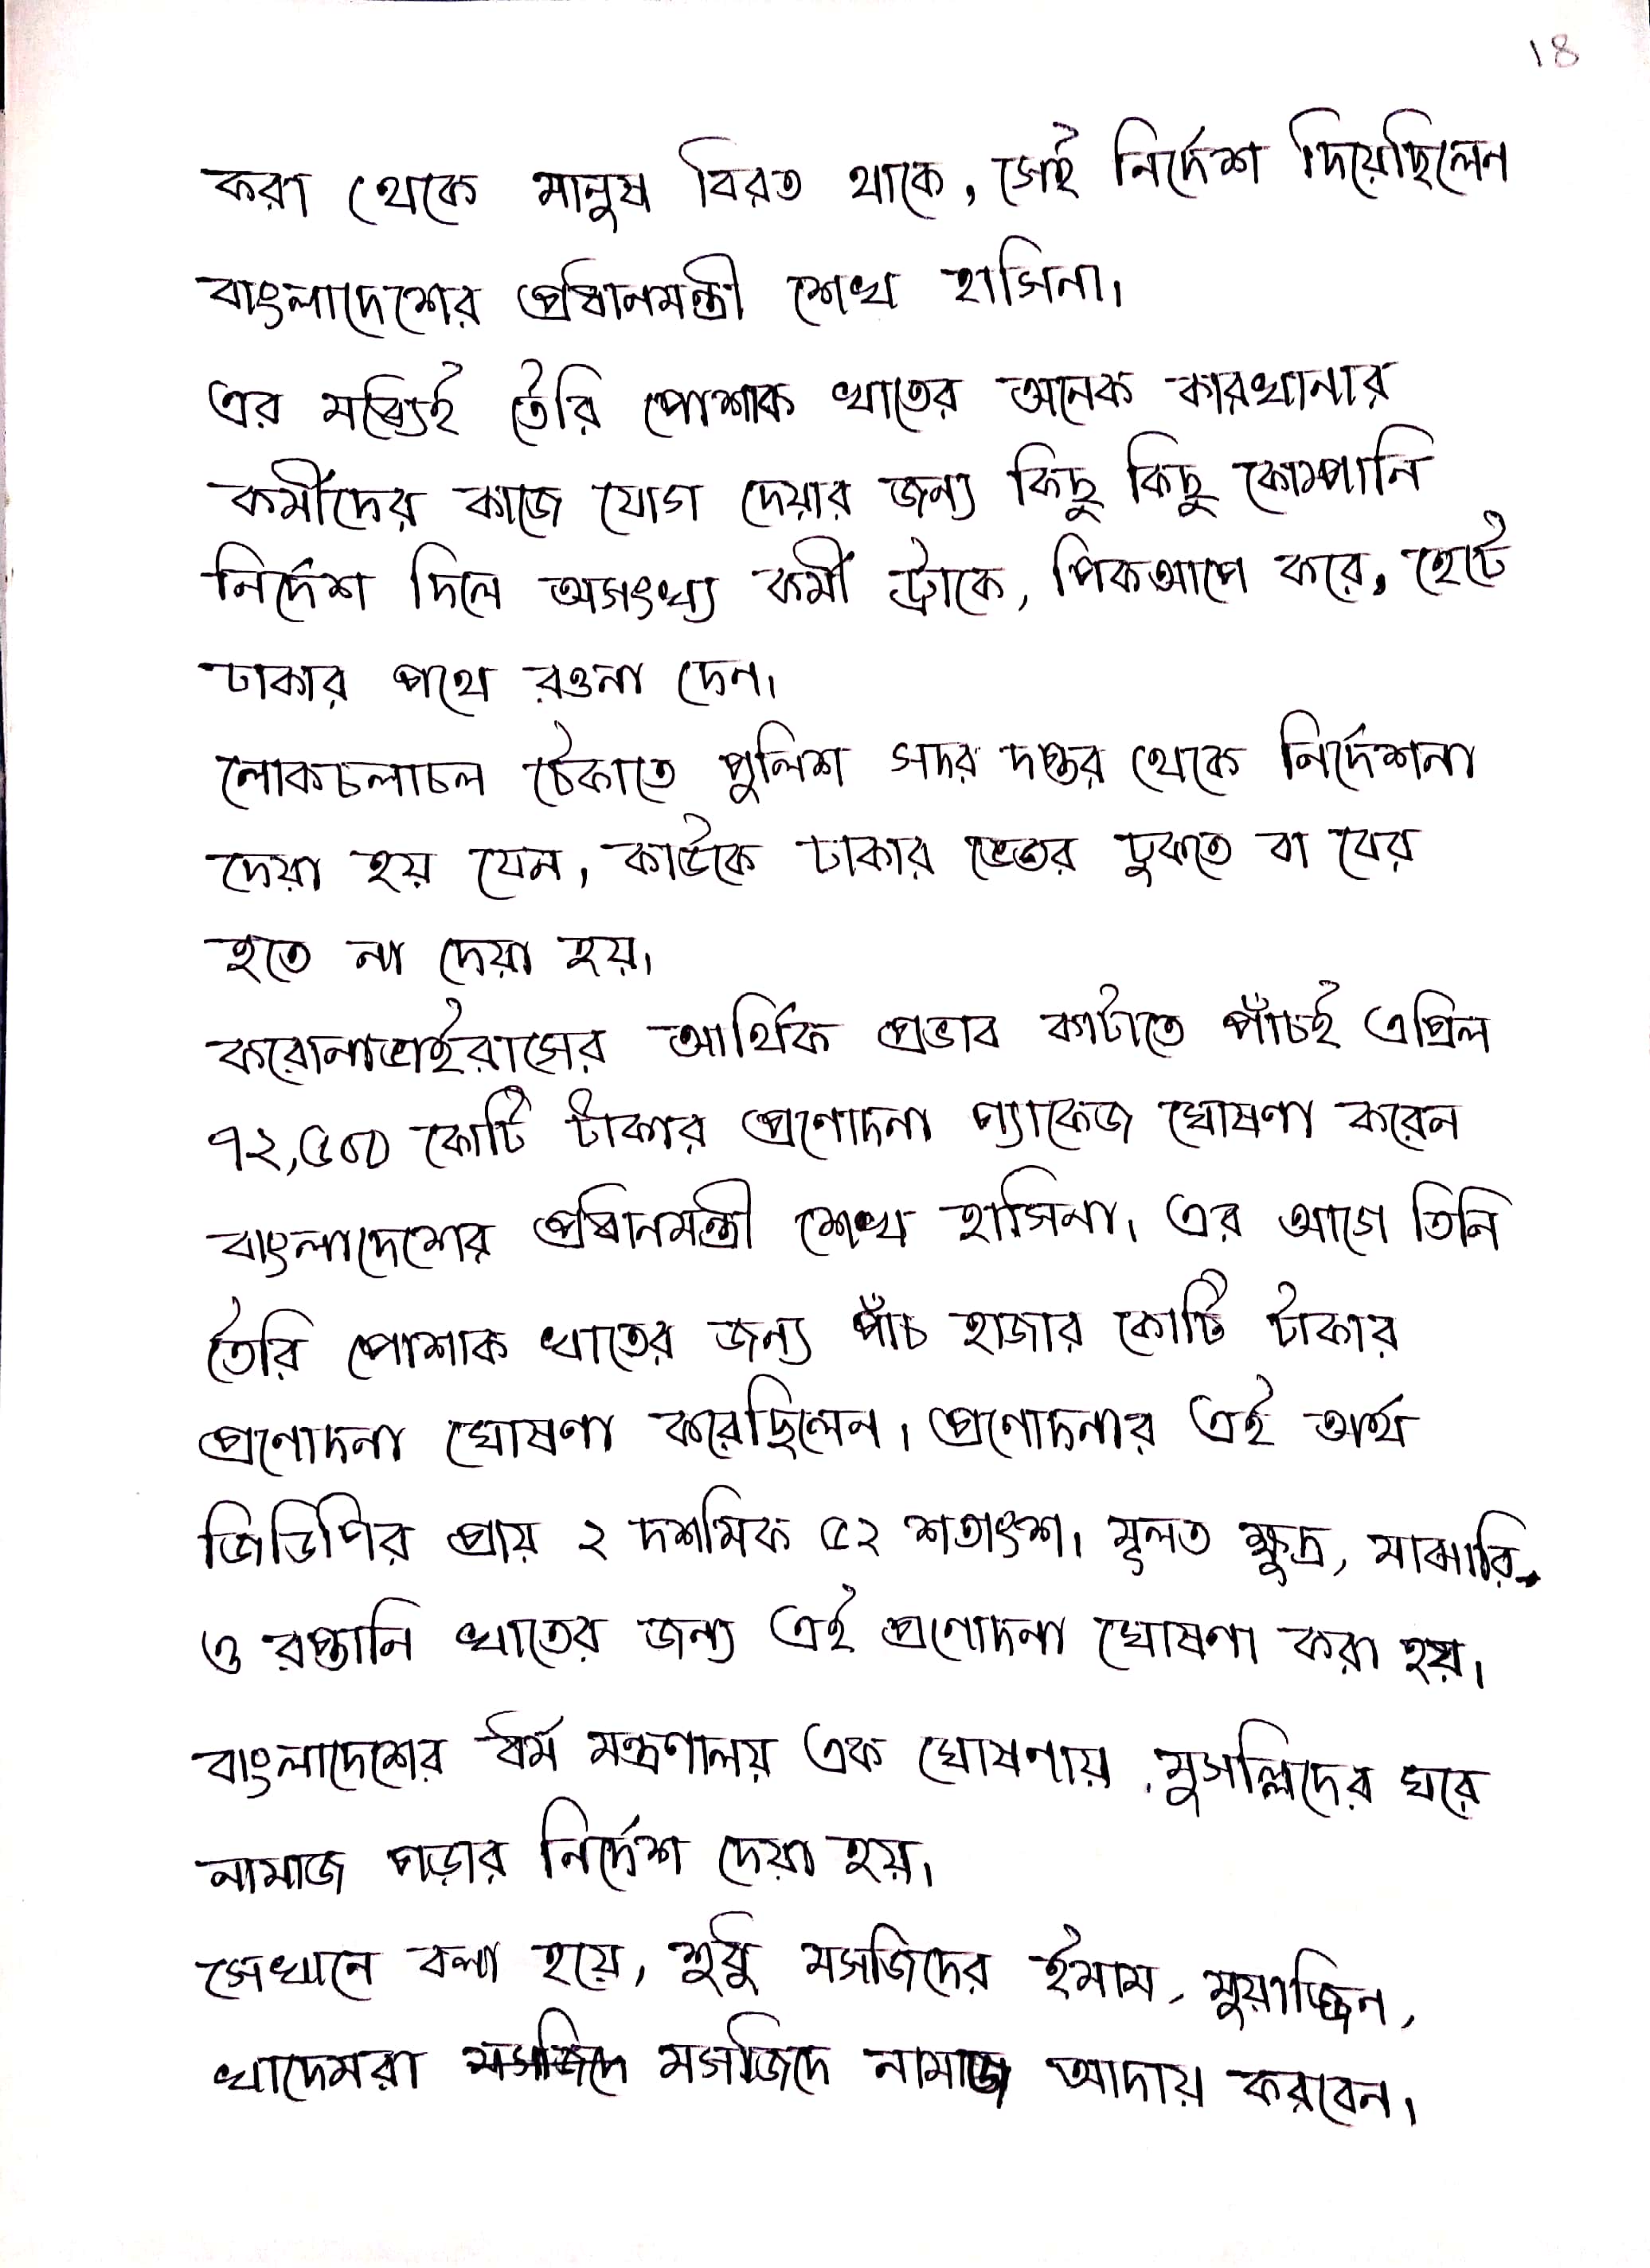 18
করা থেকে মানুষ বিরত থাকে, সেই নির্দেশ দিয়েছিলেন
বাংলাদেশের প্রধানমন্ত্রী শেখ হাসিনা।
এর মধ্যেই তৈরি পোশাক খাতের অনেক কারখানার
কর্মীদের কাজে যোগ দেয়ার জন্য কিছু কিছু কোম্পানি
নির্দেশ দিলে অসংখ্য কর্মী ট্রাকে, পিকআপে করে, হেটে
ঢাকার পথে রওনা দেন।
লোকচলাচল ঠেকাতে পুলিশ সদর দপ্তর থেকে নির্দেশনা
দেয়া হয় যেন, কাউকে ঢাকার ভেতর ঢুকতে বা বের
হতে না দেয়া হয়।
করোনাভাইরাসের আর্থিক প্রভাব কাটাতে পাঁচই এপ্রিল
৭২,৫০০ কোটি টাকার প্রণোদনা প্যাকেজ ঘোষণা করেন
বাংলাদেশের প্রধানমন্ত্রী শেখ হাসিনা। এর আগে তিনি
তৈরি পোশাক খাতের জন্য পাঁচ হাজার কোটি টাকার
প্রণোদনা ঘোষণা করেছিলেন। প্রণোদনার এই অর্থ
জিডিপির প্রায় ২ দশমিক ৫২ শতাংশ। মূলত ক্ষুদ্র, মাঝারি
ও রপ্তানি খাতের জন্য এই প্রণোদনা ঘোষণা করা হয়।
বাংলাদেশের ধর্ম মন্ত্রণালয় এক ঘোষণায় মুসল্লিদের ঘরে
নামাজ পড়ার নির্দেশ দেয়া হয়।
সেখানে বলা হয়ে, শুধু মসজিদের ইমাম, মুয়াজ্জিন,
খাদেমরা মসজিদে মসজিদে নামাজ আদায় করবেন।